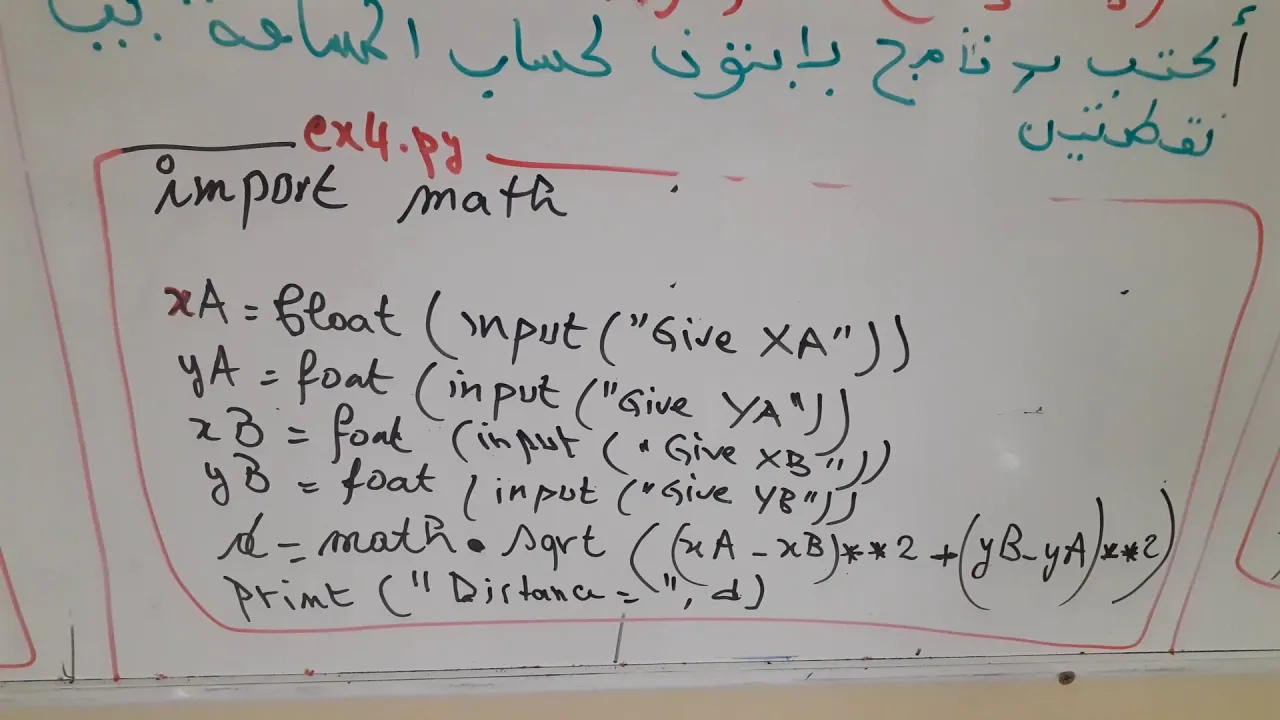 أكتب برنامج بايتون لحساب المسافة بين
نقطتين
ex4.py
import math
xA = float (input ("Give XA"))
yA = foat (input ("Give YA"))
xB = foat (input ("Give XB"))
yB = foat (input ("Give YB"))
d = math.sqrt ((xA - xB)**2 + (yB - yA)**2)
print ("Distance = ", d)